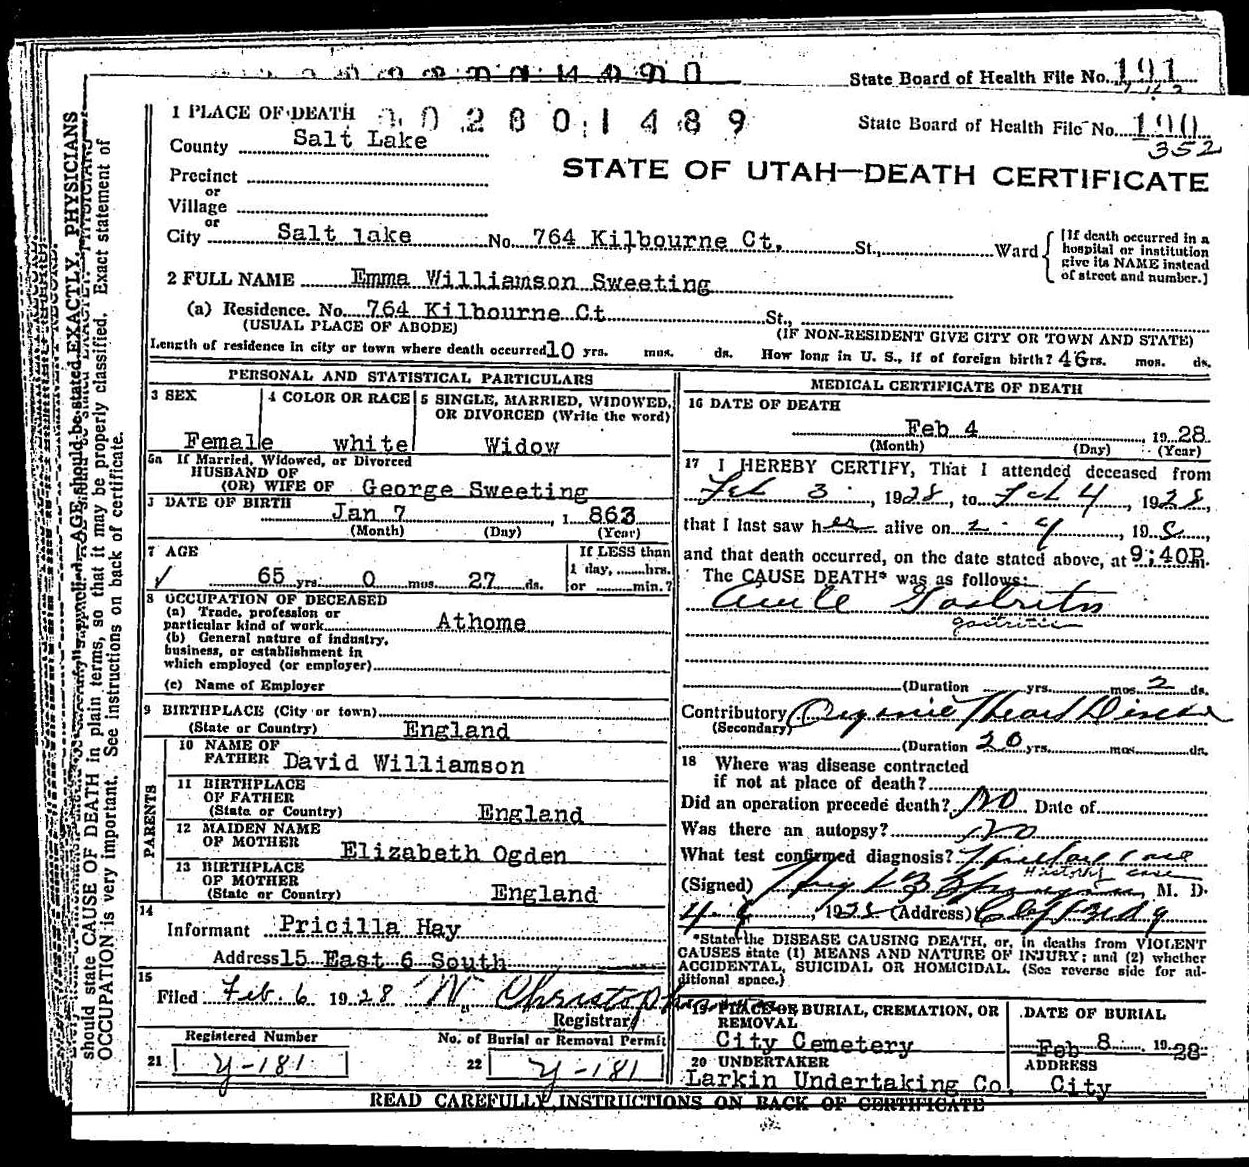 State Board of Health File No. 191
1 PLACE OF DEATH
0 2 8 0 1 4 8 9
State Board of Health File No. 190
352
County Salt Lake
STATE OF UTAH—DEATH CERTIFICATE
Precinct
or
Village
or
City Salt lake No. 764 Kilbourne Ct. St., Ward
[If death occurred in a hospital or institution give its NAME instead of street and number.]
2 FULL NAME Emma Williamson Sweeting
(a) Residence. No. 764 Kilbourne Ct St.,
(USUAL PLACE OF ABODE) (IF NON-RESIDENT GIVE CITY OR TOWN AND STATE)
Length of residence in city or town where death occurred 10 yrs. mos. ds. How long in U. S., if of foreign birth? 46rs. mos. ds.
PERSONAL AND STATISTICAL PARTICULARS
3 SEX 4 COLOR OR RACE 5 SINGLE, MARRIED, WIDOWED,
OR DIVORCED (Write the word)
Female white Widow
5a If Married, Widowed, or Divorced
HUSBAND OF
(OR) WIFE OF George Sweeting
DATE OF BIRTH
Jan 7, 1 863
(Month) (Day) (Year)
7 AGE If LESS than
65 yrs. 0 mos. 27 ds. 1 day, hrs.
or min.?
8 OCCUPATION OF DECEASED
(a) Trade, profession or
particular kind of work Athome
(b) General nature of industry,
business, or establishment in
which employed (or employer)
(c) Name of Employer
9 BIRTHPLACE (City or town)
(State or Country) England
PARENTS
10 NAME OF
FATHER David Williamson
11 BIRTHPLACE
OF FATHER
(State or Country) England
12 MAIDEN NAME
OF MOTHER Elizabeth Ogden
13 BIRTHPLACE
OF MOTHER
(State or Country) England
14
Informant Pricilla Hay
Address 15 East 6 South
15
Filed Feb 6 1928 W. Christopherson
Registrar
Registered Number No. of Burial or Removal Permit
21 Y-181 22 Y-181
MEDICAL CERTIFICATE OF DEATH
16 DATE OF DEATH
Feb 4, 1928
(Month) (Day) (Year)
17 I HEREBY CERTIFY, That I attended deceased from
Feb 3, 1928, to Feb 4, 1928,
that I last saw her alive on 2-4, 198,
and that death occurred, on the date stated above, at 9:40P.m.
The CAUSE DEATH* was as follows:
Acute Gastritis
gastritis
(Duration yrs. mos 2 ds.
Contributory Organic Heart Disease
(Secondary)
(Duration 20 yrs. mos. ds.
18 Where was disease contracted
if not at place of death?
Did an operation precede death? No Date of
Was there an autopsy? No
What test confirmed diagnosis?
History case
(Signed) M. D.
1928 (Address) Clift Bldg
*State the DISEASE CAUSING DEATH, or, in deaths from VIOLENT
CAUSES state (1) MEANS AND NATURE OF INJURY; and (2) whether
ACCIDENTAL, SUICIDAL OR HOMICIDAL. (See reverse side for ad-
ditional space.)
19 PLACE OF BURIAL, CREMATION, OR
REMOVAL
City Cemetery
DATE OF BURIAL
Feb 8 1928
20 UNDERTAKER ADDRESS
Larkin Undertaking Co. City
READ CAREFULLY INSTRUCTIONS ON BACK OF CERTIFICATE
AGE should be stated EXACTLY. PHYSICIANS
should state CAUSE OF DEATH in plain terms, so that it may be properly classified. Exact statement of
OCCUPATION is very important. See instructions on back of certificate.